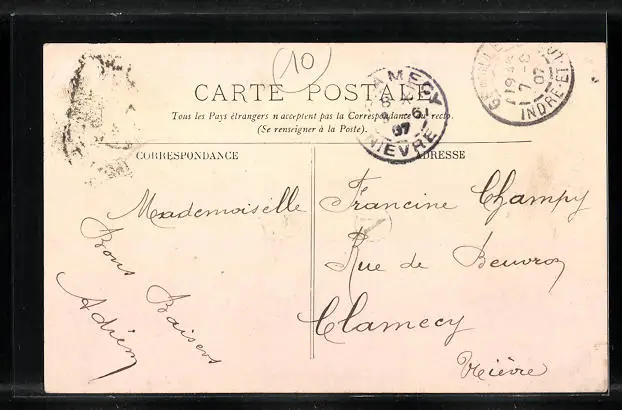 10
CARTE POSTALE
Tous les Pays étrangers n'acceptent pas la Correspondance au recto.
(Se renseigner à la Poste).
CLAMECY
NIEVRE
INDRE-ET-
CORRESPONDANCE
ADRESSE
Mademoiselle Francine Champy
Rue de Beuvron
Clamecy
Nièvre
Bons Baisers
Adrien